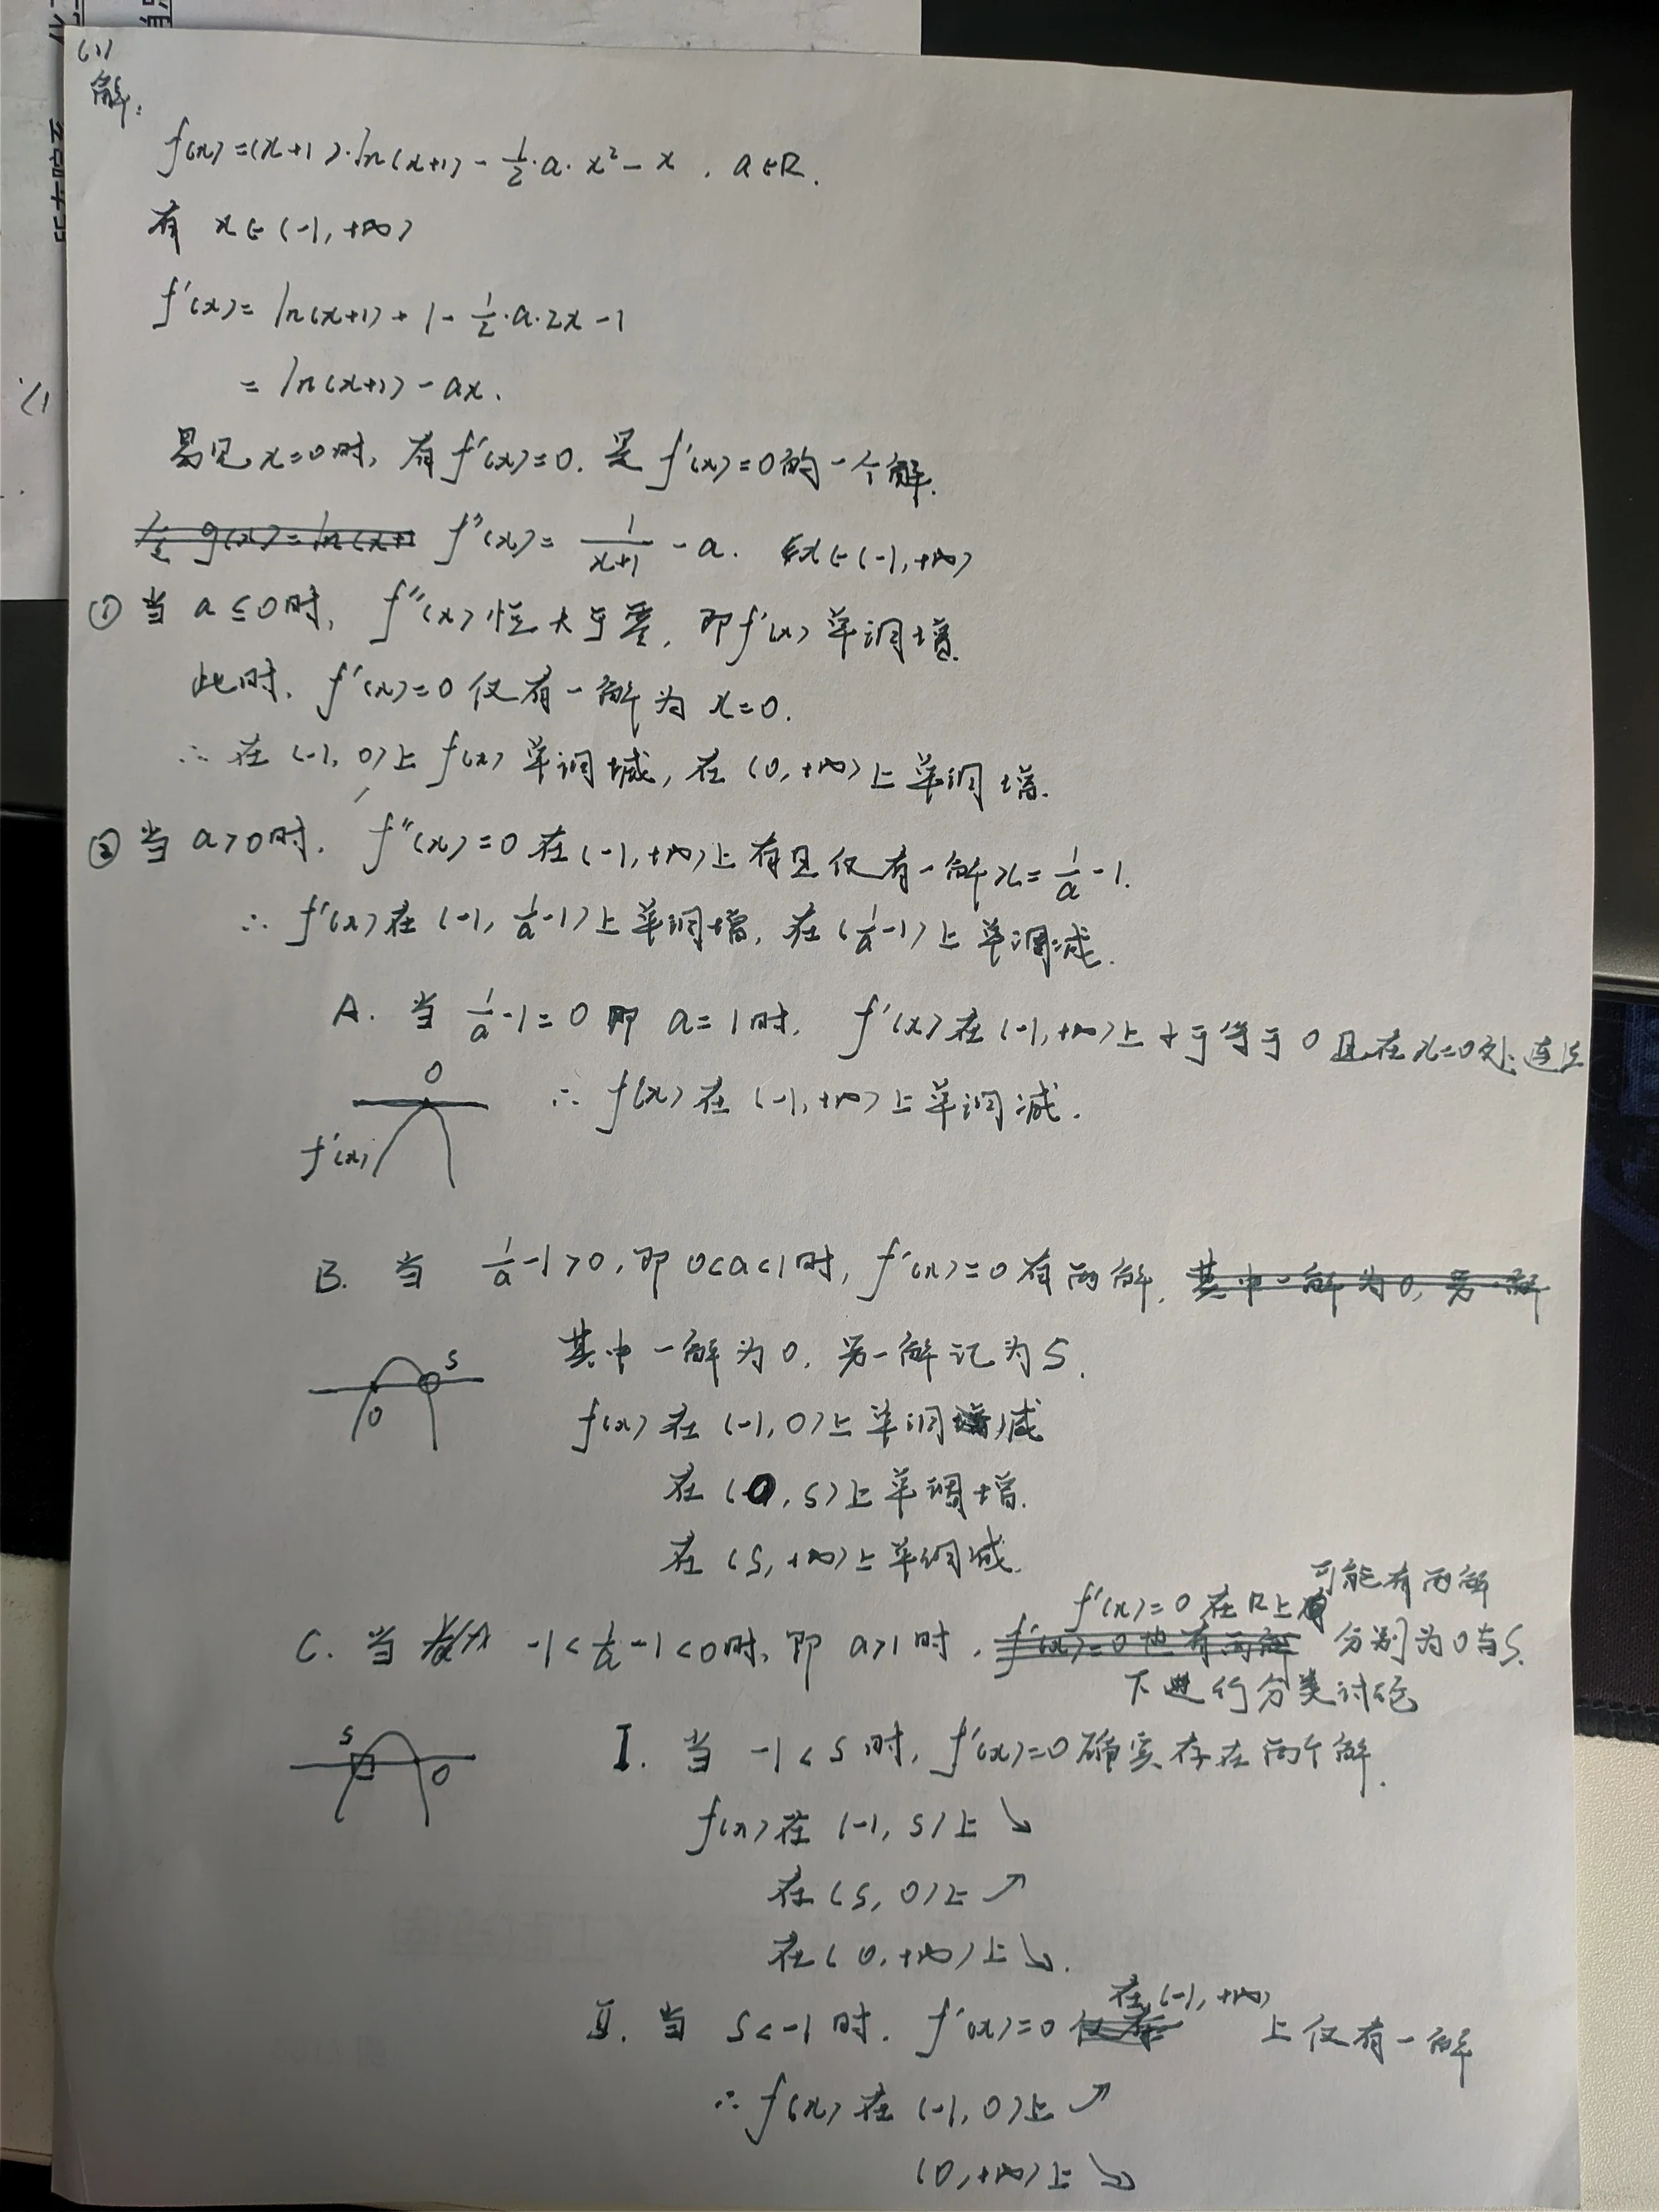 (1)
解:
f(x)=(x+1)·ln(x+1)-\frac{1}{2}·a·x²-x, a∈R.
有 x∈(-1,+∞)
f'(x)=ln(x+1)+1-\frac{1}{2}·a·2x-1
=ln(x+1)-ax.
易见x=0时, 有f'(x)=0. 是f'(x)=0的一个解.
f''(x)=\frac{1}{x+1}-a. x∈(-1,+∞)
① 当 a≤0时, f''(x)恒大于零, 即f'(x)单调增.
此时, f'(x)=0仅有一解为x=0.
∴在(-1,0)上f(x)单调减, 在(0,+∞)上单调增.
② 当a>0时, f''(x)=0在(-1,+∞)上有且仅有一解x=\frac{1}{a}-1.
∴f'(x)在(-1,\frac{1}{a}-1)上单调增, 在(\frac{1}{a}-1)上单调减.
A. 当\frac{1}{a}-1=0即a=1时, f'(x)在(-1,+∞)上小于等于0且在x=0处连续
0
∴f(x)在(-1,+∞)上单调减.
f'(x)
B. 当\frac{1}{a}-1>0, 即0<a<1时, f'(x)=0有两解, 其中一解为0, 另一解
其中一解为0, 另一解记为S.
S
0
f(x)在(-1,0)上单调减
在(0,S)上单调增.
在(S,+∞)上单调减.
C. 当 -1<\frac{1}{a}-1<0时, 即a>1时, f'(x)=0也有两解
f'(x)=0在R上可能有两解
分别为0与S.
下进行分类讨论
S
0
I. 当-1<S时, f'(x)=0确实存在两个解.
f(x)在(-1,S)上↘
在(S,0)上↗
在(0,+∞)上↘.
II. 当S<-1时. f'(x)=0在(-1,+∞)上仅有一解
∴f(x)在(-1,0)上↗
(0,+∞)上↘